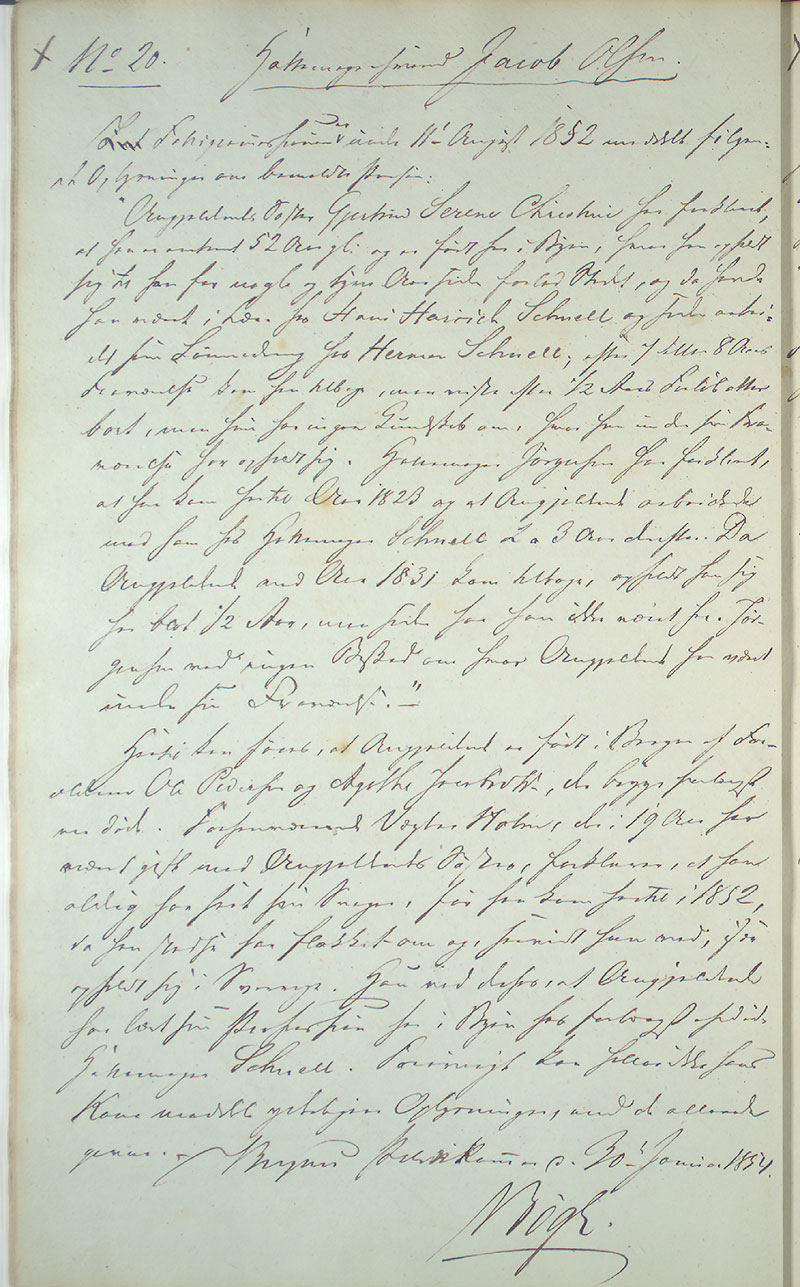 No 20. Hattemagersvend Jacob Olsen.
Fra Fattigcommissionen er under 11te August 1852 meddelt følgen-
de Oplysninger om bemeldte Person:
"Angjeldendes Søster Gjertrud Serene Christine har forklaret,
at han er omtrent 52 Aar gl. og er født her i Byen, hvor han opholdt
sig til han for nogle og tyve Aar siden forlod Stedet, og da havde
han været i Lære hos Hans Hinrich Schnell og siden arbei-
det hos Herman Schnell; efter 7 eller 8 Aars
Fraværelse kom han tilbage, men reiste efter 1/2 Aars Forløb atter
bort, men hun har ingen Kundskab om, hvor han under sin Fra-
værelse har opholdt sig. Hattemager Jørgensen har forklaret,
at han kom hertil Aar 1823 og at Angjeldende arbeidede
med ham hos Hattemager Schnell 2 a 3 Aar derefter. Da
Angjeldende ved Aar 1831 kom tilbage, opholdt han sig
her blot 1/2 Aar, men siden har han ikke været her. Jør-
gensen ved ingen Besked om hvor Angjeldende har været
under sin Fraværelse."
Hertil kan føies, at Angjeldende er født i Bergen af For-
ældrene Ole Pedersen og Agethe Jacobsdtr, der begge forlængst
ere døde. Forhenværende Vægter Holm, der i 19 Aar har
været gift med Angjeldendes Søster, forklarer, at han
aldrig har seet sin Svoger, før han kom hertil i 1852,
da han stedse har flakket om og, saavidt han ved, især
opholdt sig i Sverige. Han ved derhos, at Angjeldende
har lært sin Profession her i Byen hos forlængst afdøde
Hattemager Schnell. Forøvrigt kan hellerikke hans
Kone meddele yderligere Oplysninger, end de allerede
givne. Bergens Politikammer d. 30te Januar 1854.